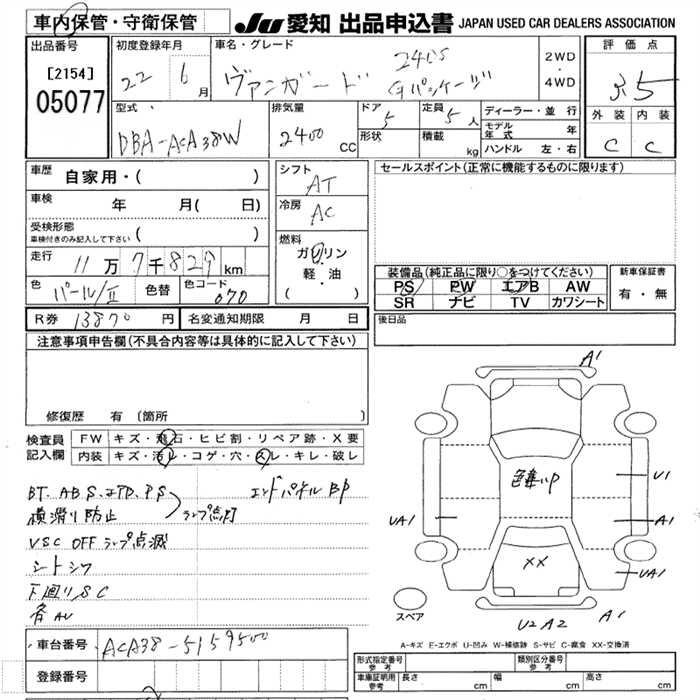 車内保管・守衛保管
JU 愛知 出品申込書 JAPAN USED CAR DEALERS ASSOCIATION
出品番号
[2154]
05077
初度登録年月
22 6月
車名・グレード
ヴァンガード 240S Gパッケージ
2WD・4WD
評価点
3.5
外装 内装
C C
型式
DBA-ACA38W
排気量
2400 CC
ドア 5
形状
定員 5人
積載 kg
ディーラー・並行
モデル年式 年
ハンドル 左・右
車歴
自家用・( )
車検 年 月( 日)
受検形態
車検付きのみ記入して下さい ( )
走行 11万7千829km
色 パール/II 色替 色コード 070
R券 13870円 名変通知期限 月 日
シフト
AT
冷房
AC
燃料
ガソリン
軽・油
( )
セールスポイント(正常に機能するものに限ります)
装備品(純正品に限り○をつけてください)
PS PW エアB AW
SR ナビ TV カワシート
新車保証書
有・無
後日品
注意事項申告欄(不具合内容等は具体的に記入して下さい)
修復歴 有 (箇所
検査員記入欄
FW キズ・飛石・ヒビ割・リペア跡・X要
内装 キズ・汚レ・コゲ・穴・スレ・キレ・破レ
エンドパネルBP
横滑り防止 ランプ点灯
VSC OFF ランプ点滅
シートシワ
下回りSC
A1
U1
色違いP
UA1
A1
XX
UA1
スペア
U2 A2
A1
A-キズ E-エクボ U-凹み W-補修跡 S-サビ C-腐食 XX-交換済
車台番号 ACA38-5159500
登録番号
形式指定番号 参考
類別区分番号 参考
車庫証明用 参考 長さ cm 幅 cm 高さ cm